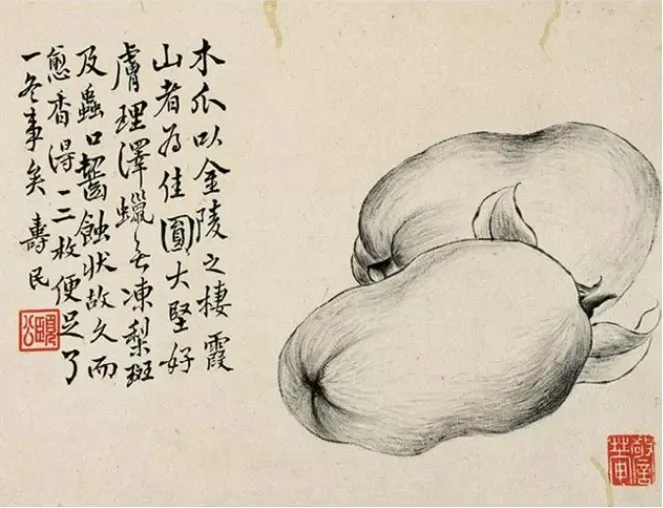 木瓜以金陵之棲霞
山者为佳圓大堅好
膚理澤蠟无凍梨斑
及蟲口齧蝕状故久而
愈香得一二枚便足了
一冬事矣 壽民
頤公